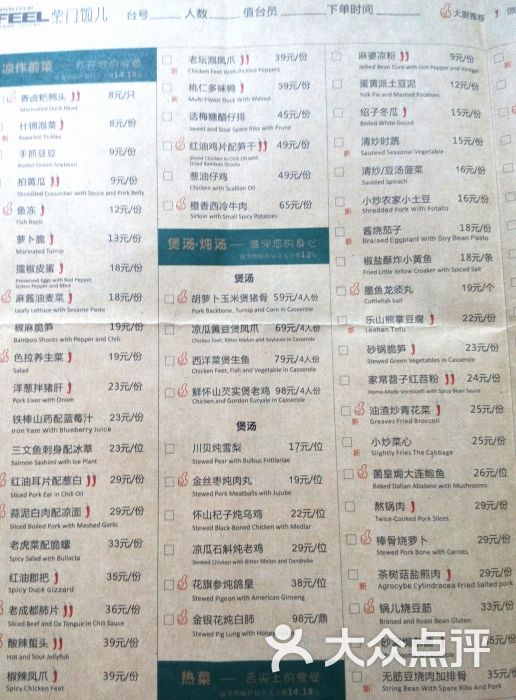 FEEL 柴门饭儿 台号 人数 值台员 下单时间 大厨推荐
凉作前菜
香卤粑鸭头 8元/只
Marinated Duck Head
什锦泡菜 8元/份
Assorted Pickles
手抓豆豆 9元/份
Boiled Green Soybean
拍黄瓜 9元/份
Shredded Cucumber with Sauce and Pork Belly
鱼冻 12元/份
Fish Aspic
萝卜脆 13元/份
Marinated Turnip
擂椒皮蛋 18元/份
Preserved Eggs with Red Pepper, Green Pepper and Mince
麻酱油麦菜 18元/份
Leafy Lettuce with Sesame Paste
椒麻脆笋 19元/份
Bamboo Shoots with Pepper and Chili
色拉养生菜 19元/份
Salad
洋葱拌猪肝 23元/份
Pork Liver with Onion
铁棒山药配蓝莓汁 23元/份
Iron Yam With Blueberry Juice
三文鱼刺身配冰草 23元/位
Salmon Sashimi with Ice Plant
红油耳片配葱白 29元/份
Sliced Pork Ear in Chili Oil
蒜泥白肉配凉面 29元/份
Sliced Boiled Pork with Mashed Garlic
老虎菜配脆螺 33元/份
Spicy Salad with Bullacta
红油郡把 35元/份
Spicy Duck Gizzard
老成都肺片 36元/份
Sliced Beef and Ox Tongue in Chili Sauce
酸辣蜇头 39元/份
Hot and Sour Jellyfish
椒辣凤爪 39元/份
Spicy Chicken Feet
老坛泡凤爪 39元/份
Chicken Feet With Pickled Peppers
桃仁多味鸭 39元/份
Multi Flavor Duck With Walnut
话梅糖醋仔排 45元/份
Sweet and Sour Spare Ribs with Prune
红油鸡片配笋干 49元/份
Sliced Chicken in Chili Oil with Dried Bamboo Shoots
葱油仔鸡 49元/份
Chicken with Scallion Oil
橙香西冷牛肉 65元/份
Sirloin with Small Spicy Potatoes
煲汤·炖汤
煲汤
胡萝卜玉米煲猪骨 59元/4人份
Pork Backbone, Turnip and Corn in Casserole
凉瓜黄豆煲凤爪 69元/4人份
Chicken Feet, Bitter Melon and Soybean in Casserole
西洋菜煲生鱼 79元/4人份
Chicken Feet, Fish and Vegetable in Casserole
鲜怀山芡实煲老鸡 98元/4人份
Chicken and Gordon Euryale in Casserole
煲汤
川贝炖雪梨 17元/位
Stewed Pear with Bulbus Fritillariae
金丝枣炖肉丸 19元/位
Stewed Pork Meatballs with Jujube
怀山杞子炖乌鸡 22元/位
Stewed Black-Boned Chicken with Medlar
凉瓜石斛炖老鸡 29元/位
Stewed Chicken with Bitter Melon and Dendrobe
花旗参炖鸽皇 38元/位
Stewed Pigeon with American Ginseng
金银花炖白肺 98元/鼎
Stewed Pig Lung with Honey
热菜 舌尖上的宠爱
麻婆凉粉 9元/份
Jellied Bean Curd with Hot Pepper and Vinegar
蛋黄派土豆泥 12元/份
Yolk Pie and Mashed Potatoes
绍子冬瓜 15元/份
Boiled White Gourd
清炒时蔬 15元/份
Sauteed Seasonal Vegetable
清炒/豆汤菠菜 16元/份
Sauteed Spinach
小炒农家小土豆 16元/份
Shredded Pork With Potato
酱烧茄子 18元/份
Braised Eggplant With Soy Bean Paste
椒盐酥炸小黄鱼 18元/条
Fried Little Yellow Croaker with Spiced Salt
墨鱼龙须丸 19元/个
Cuttlefish ball
乐山熊掌豆腐 22元/份
Leshan Tofu
砂锅脆笋 19元/份
Stewed Green Vegetables in Casserole
家常苕子红苕粉 24元/份
Home-Made Vermicelli with Spicy Bean Sauce
油渣炒青花菜 25元/份
Greaves Fried Broccoli
小炒菜心 25元/份
Slightly Fries The Cabbage
菌皇焗大连鲍鱼 26元/位
Baked Dalian Abalone with Mushrooms
熬锅肉 29元/份
Twice-Cooked Pork Slices
棒骨烧萝卜 29元/份
Stewed Pork Bone with Carrots
茶树菇盐煎肉 29元/份
Agrocybe Cylindracea Fried Salted pork
锅儿烧豆筋 29元/份
Braised and Roast Bean Gluten
无筋豆烧肉加排骨 35元/份
String Bean With Spare Ribs And Pork
大众点评